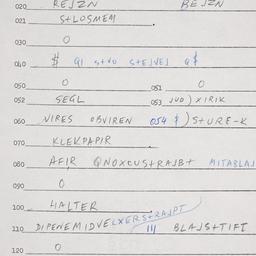 020 REJZN BEJZN
021 S+LOSMEM
030 O
040 $ QI S+VO S+EJVEJ Q$
050 O 051 O
052 SEGL 053 JUD) XIRIK
060 VIRES OBVIREN 054 $) S+URE-K
070 KLEKPAPIR
080 AFIR QNOXCUS+RAJB+ MITABLAJ
090 O
100 HALTER
110 DIPENEMIDVELXERS+RAJPT 111 BLAJS+TIFT
120 O